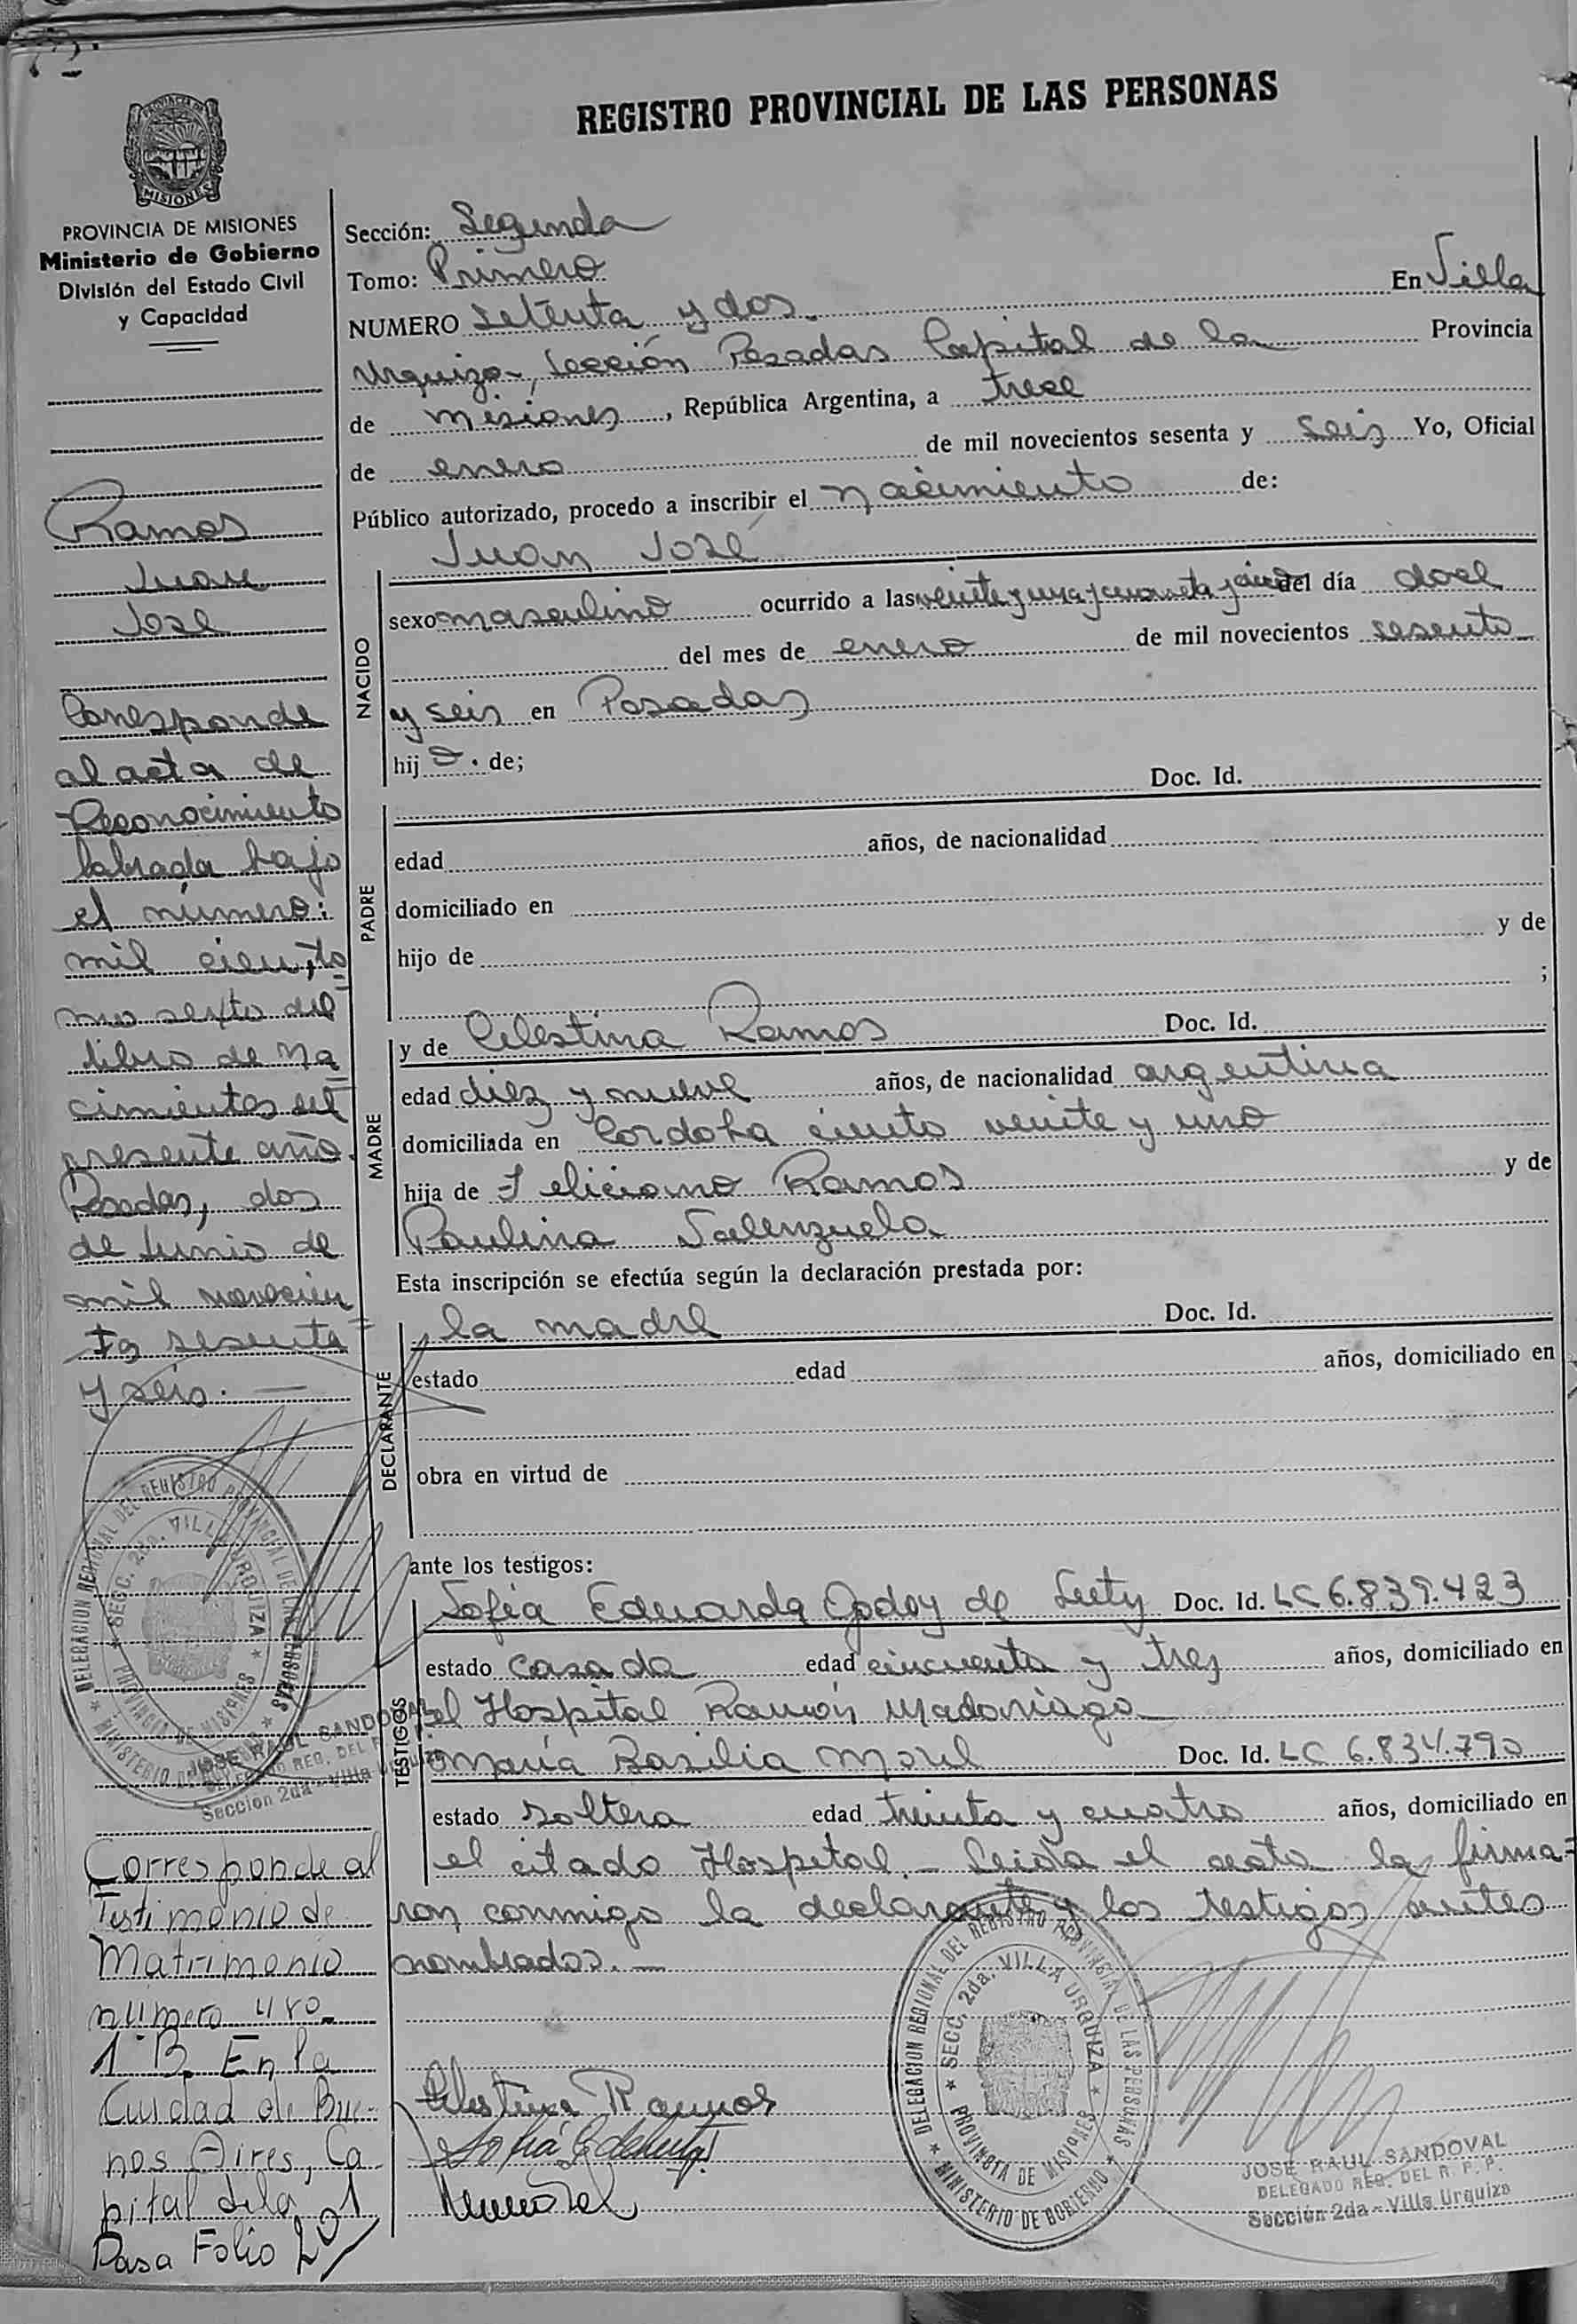 72.
REGISTRO PROVINCIAL DE LAS PERSONAS
PROVINCIA DE MISIONES
MISIONES
PROVINCIA DE MISIONES
Ministerio de Gobierno
División del Estado Civil
y Capacidad
Ramos
Juan
José
Corresponde
al acta de
Reconocimiento
labrada bajo
el número:
mil cien, to
mo sexto del
libro de Na
cimientos del
presente año.
Posadas, dos
de Junio de
mil novecien
tos sesenta
y seis. —
DELEGACION REGIONAL DEL REGISTRO PROVINCIAL DE LAS PERSONAS
SECC. 2da. VILLA URQUIZA
PROVINCIA DE MISIONES
MINISTERIO DE GOBIERNO
JOSE RAUL SANDOVAL
DELEGADO REG. DEL R. P. P.
Sección 2da - Villa Urquiza
Corresponde al
Testimonio de
Matrimonio
número
1 B. En la
Cuidad de Bue-
nos Aires, Ca
pital de la
Pasa Folio 201
Sección: Segunda
Tomo: Primero
NUMERO Setenta y dos. En Villa
Urquiza, Sección Posadas Capital de la Provincia
de misiones, República Argentina, a trece
de enero de mil novecientos sesenta y seis Yo, Oficial
Público autorizado, procedo a inscribir el nacimiento de:
Juan José
NACIDO
sexo masculino ocurrido a las veinte y una y cuarenta y cinco del día doce
del mes de enero de mil novecientos sesenta
y seis en Posadas
hij o. de;
PADRE
Doc. Id.
edad años, de nacionalidad
domiciliado en
hijo de y de
;
MADRE
y de Celestina Ramos Doc. Id.
edad diez y nueve años, de nacionalidad argentina
domiciliada en Cordoba ciento veinte y uno
hija de Feliciano Ramos y de
Paulina Valenzuela
Esta inscripción se efectúa según la declaración prestada por:
DECLARANTE
la madre Doc. Id.
estado edad años, domiciliado en
obra en virtud de
ante los testigos:
TESTIGOS
Sofía Eduarda Godoy de Doc. Id. LC 6.839.423
estado casada edad cincuenta y tres años, domiciliado en
el Hospital Ramón Madariaga
María Basilia Morel Doc. Id. LC 6.834.790
estado soltera edad treinta y cuatro años, domiciliado en
el citado Hospital. — Leida el acta la firma=
ron conmigo la declarante y los testigos antes
nombrados. —
Celestina Ramos
DELEGACION REGIONAL DEL REGISTRO PROVINCIAL DE LAS PERSONAS
SECC. 2da. VILLA URQUIZA
PROVINCIA DE MISIONES
MINISTERIO DE GOBIERNO
JOSE RAUL SANDOVAL
DELEGADO REG. DEL R. P. P.
Sección 2da - Villa Urquiza